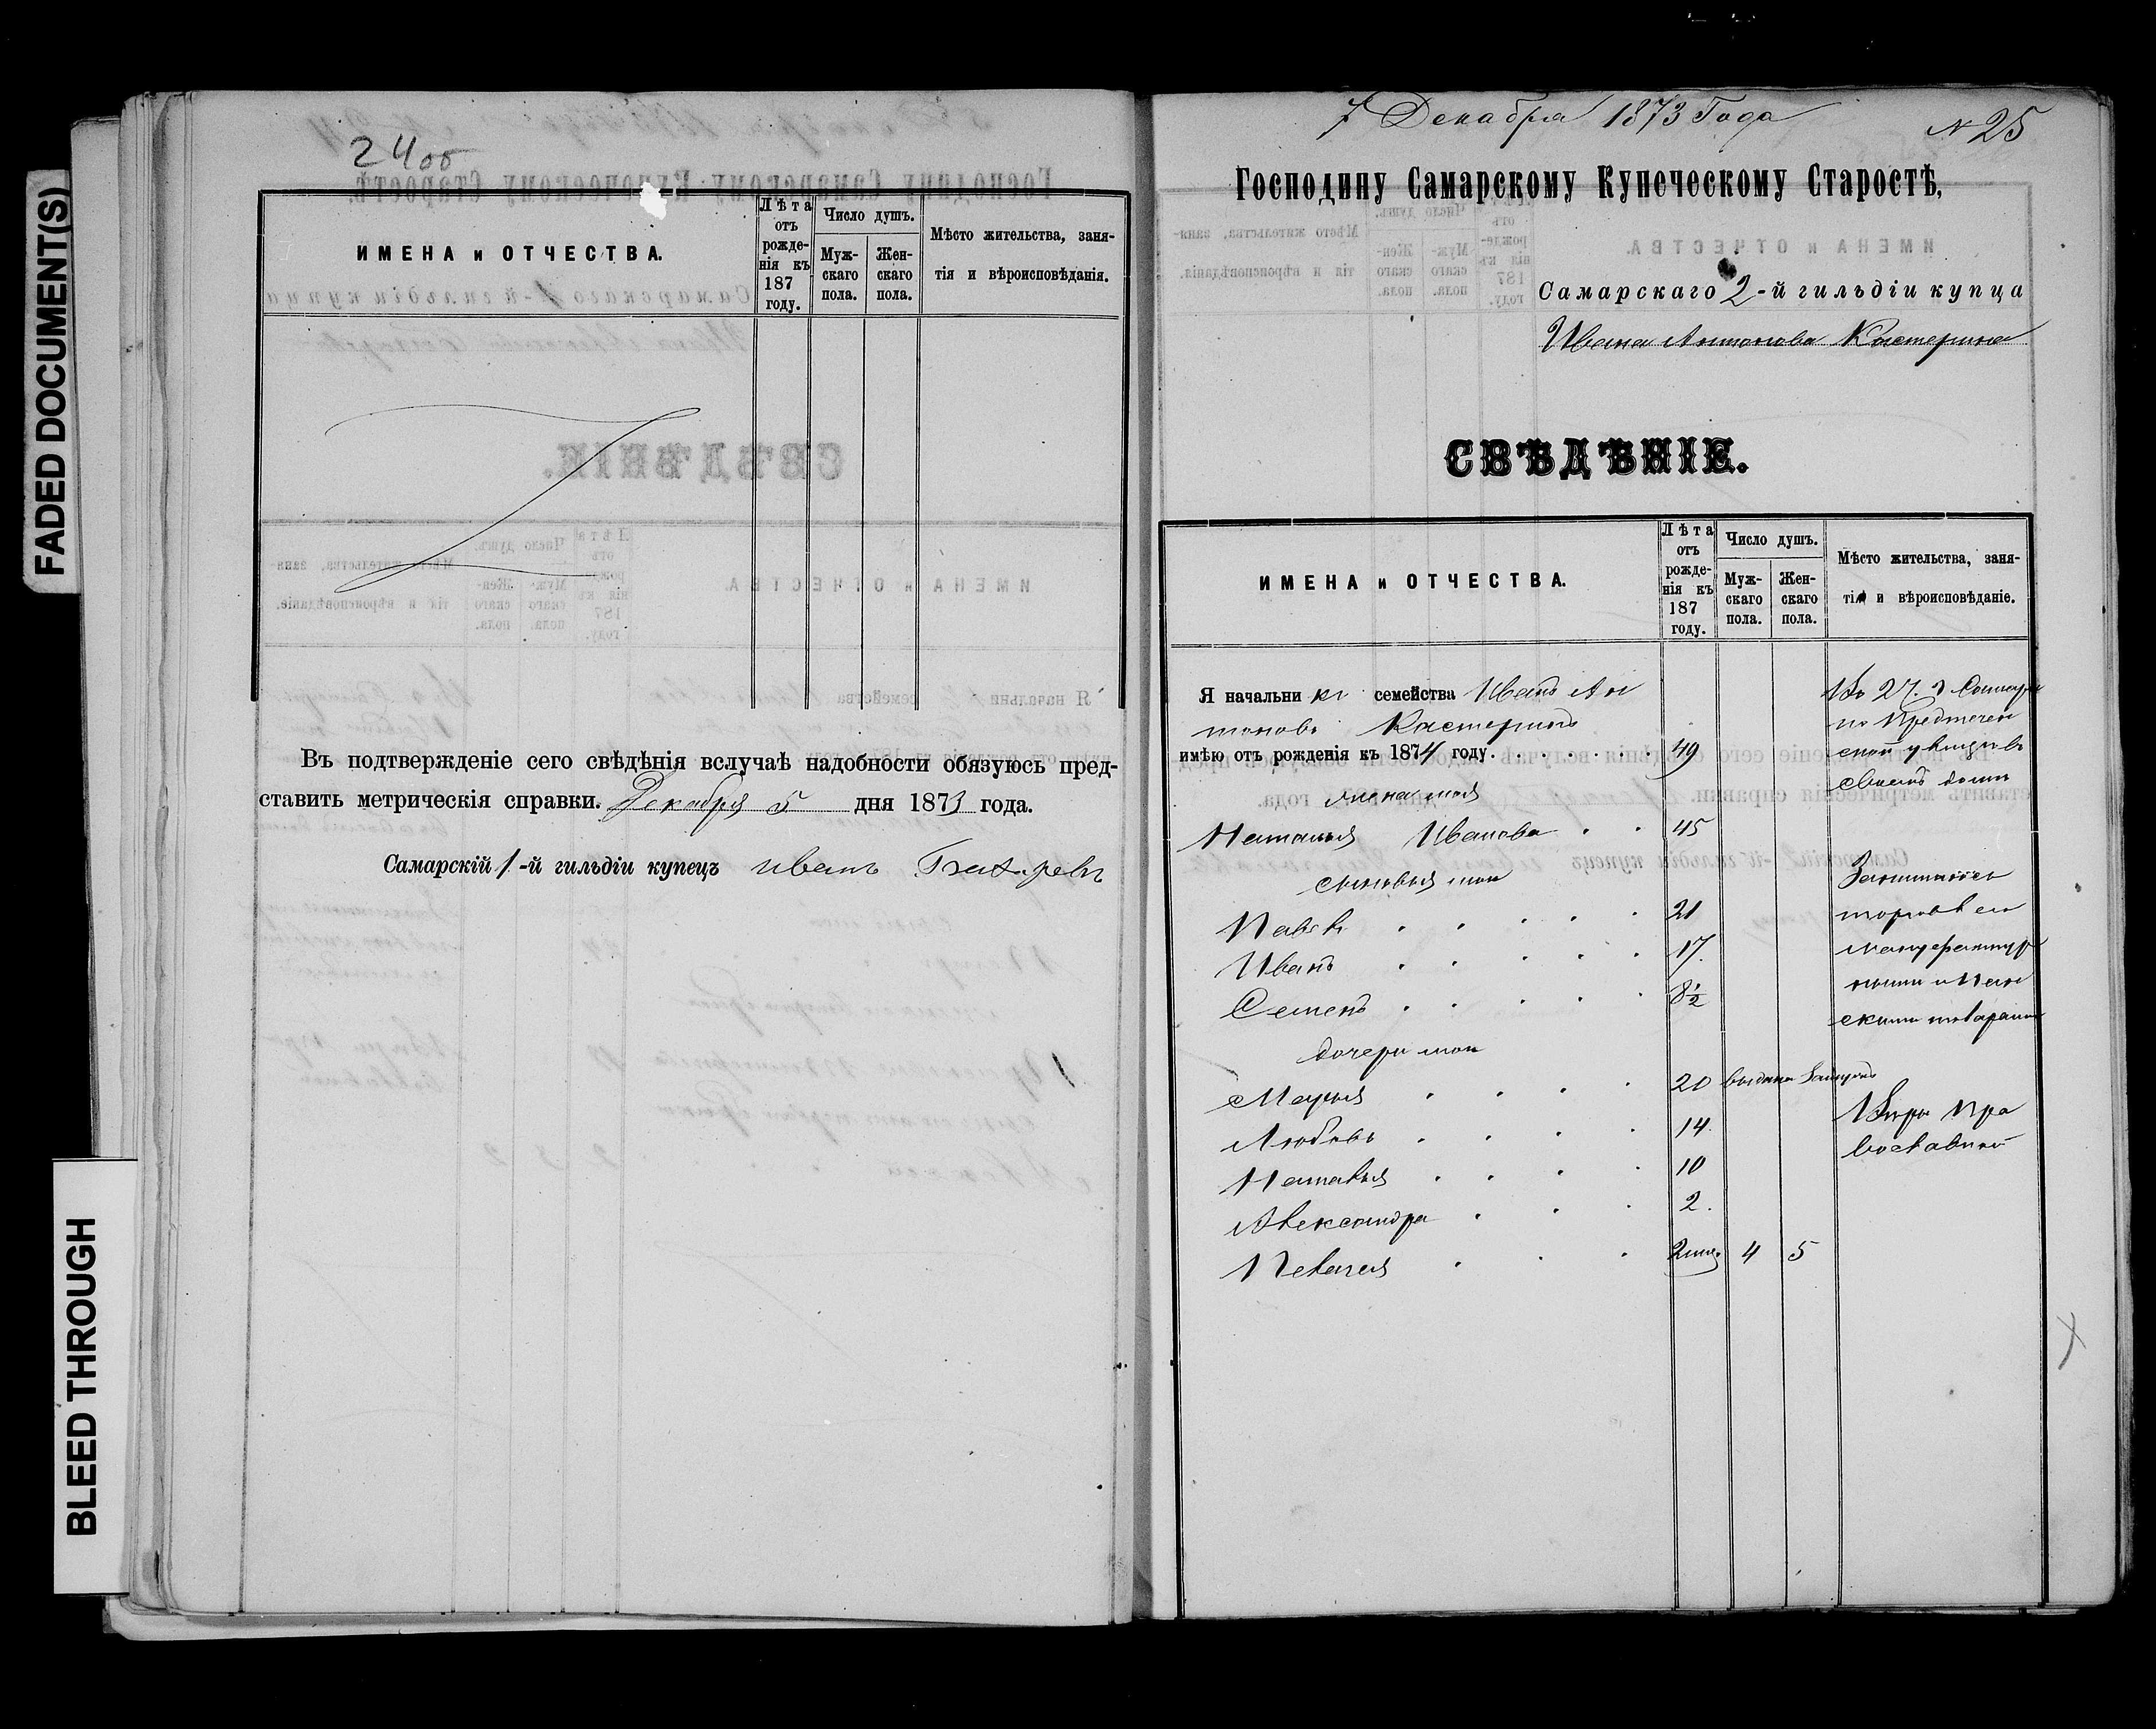 FADED DOCUMENT(S)
BLEED THROUGH
24об
ИМЕНА и ОТЧЕСТВА.
Лѣта отъ рожденія къ 187 году.
Число душъ.
Мужскаго пола.
Женскаго пола.
Мѣсто жительства, занятія и вѣроисповѣданія.
Въ подтвержденіе сего свѣдѣнія вслучаѣ надобности обязуюсь пред-
ставить метрическія справки. Декабря 5 дня 1873 года.
Самарскій 1-й гильдіи купецъ иванъ
7 Декабря 1873 Года
№ 25
Господину Самарскому Купеческому Старостѣ,
Самарскаго 2-й гильдіи купца
Ивана Антонова Кастерина
СВѢДѢНІЕ.
ИМЕНА и ОТЧЕСТВА.
Лѣта отъ рожденія къ 187 году.
Число душъ.
Мужскаго пола.
Женскаго пола.
Мѣсто жительства, заня-
тія и вѣроисповѣданіе.
Я начальникъ семейства Иванъ Ан
тоновъ Кастеринъ
имѣю отъ рожденія къ 1874 году. 49
жена моя
Наталья Иванова 45
сыновья мои
Павелъ 21
Иванъ 17.
Семенъ 8½
дочери мои
Марья 20 выдана Замужъ
Любовь 14.
Наталья 10
Александра 2.
Пелагея 2 мес. 4 5
Въ г. Самаре
по Предтечен
ской улице въ
своемъ доме
Занимаюсь
торговлею
мануфактур
ными и
скими товарами
Веры Пра
вославной